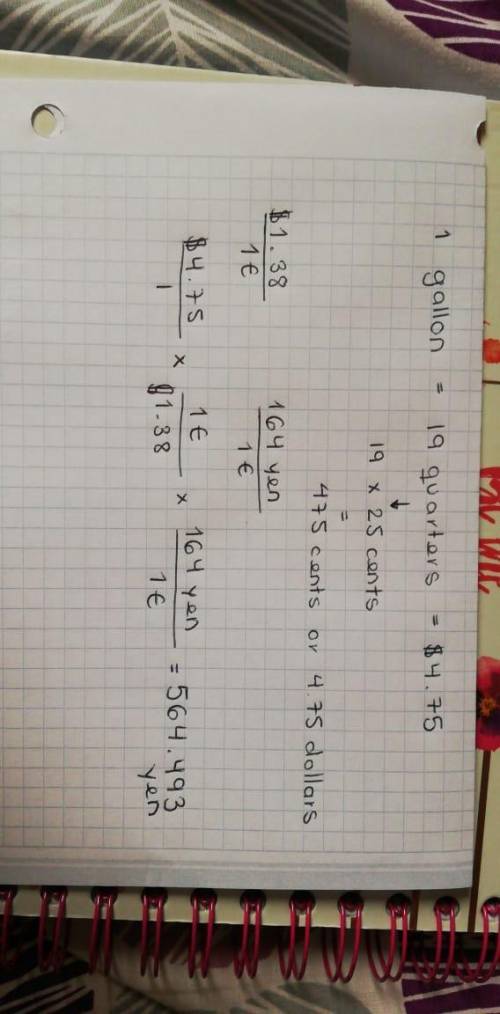 1 gallon = 19 quarters = $4.75
↓
19 × 25 cents
=
475 cents or 4.75 dollars
$1.38 / 1€    164 yen / 1€
$4.75 / 1 × 1€ / $1.38 × 164 yen / 1€ = 564.493 yen